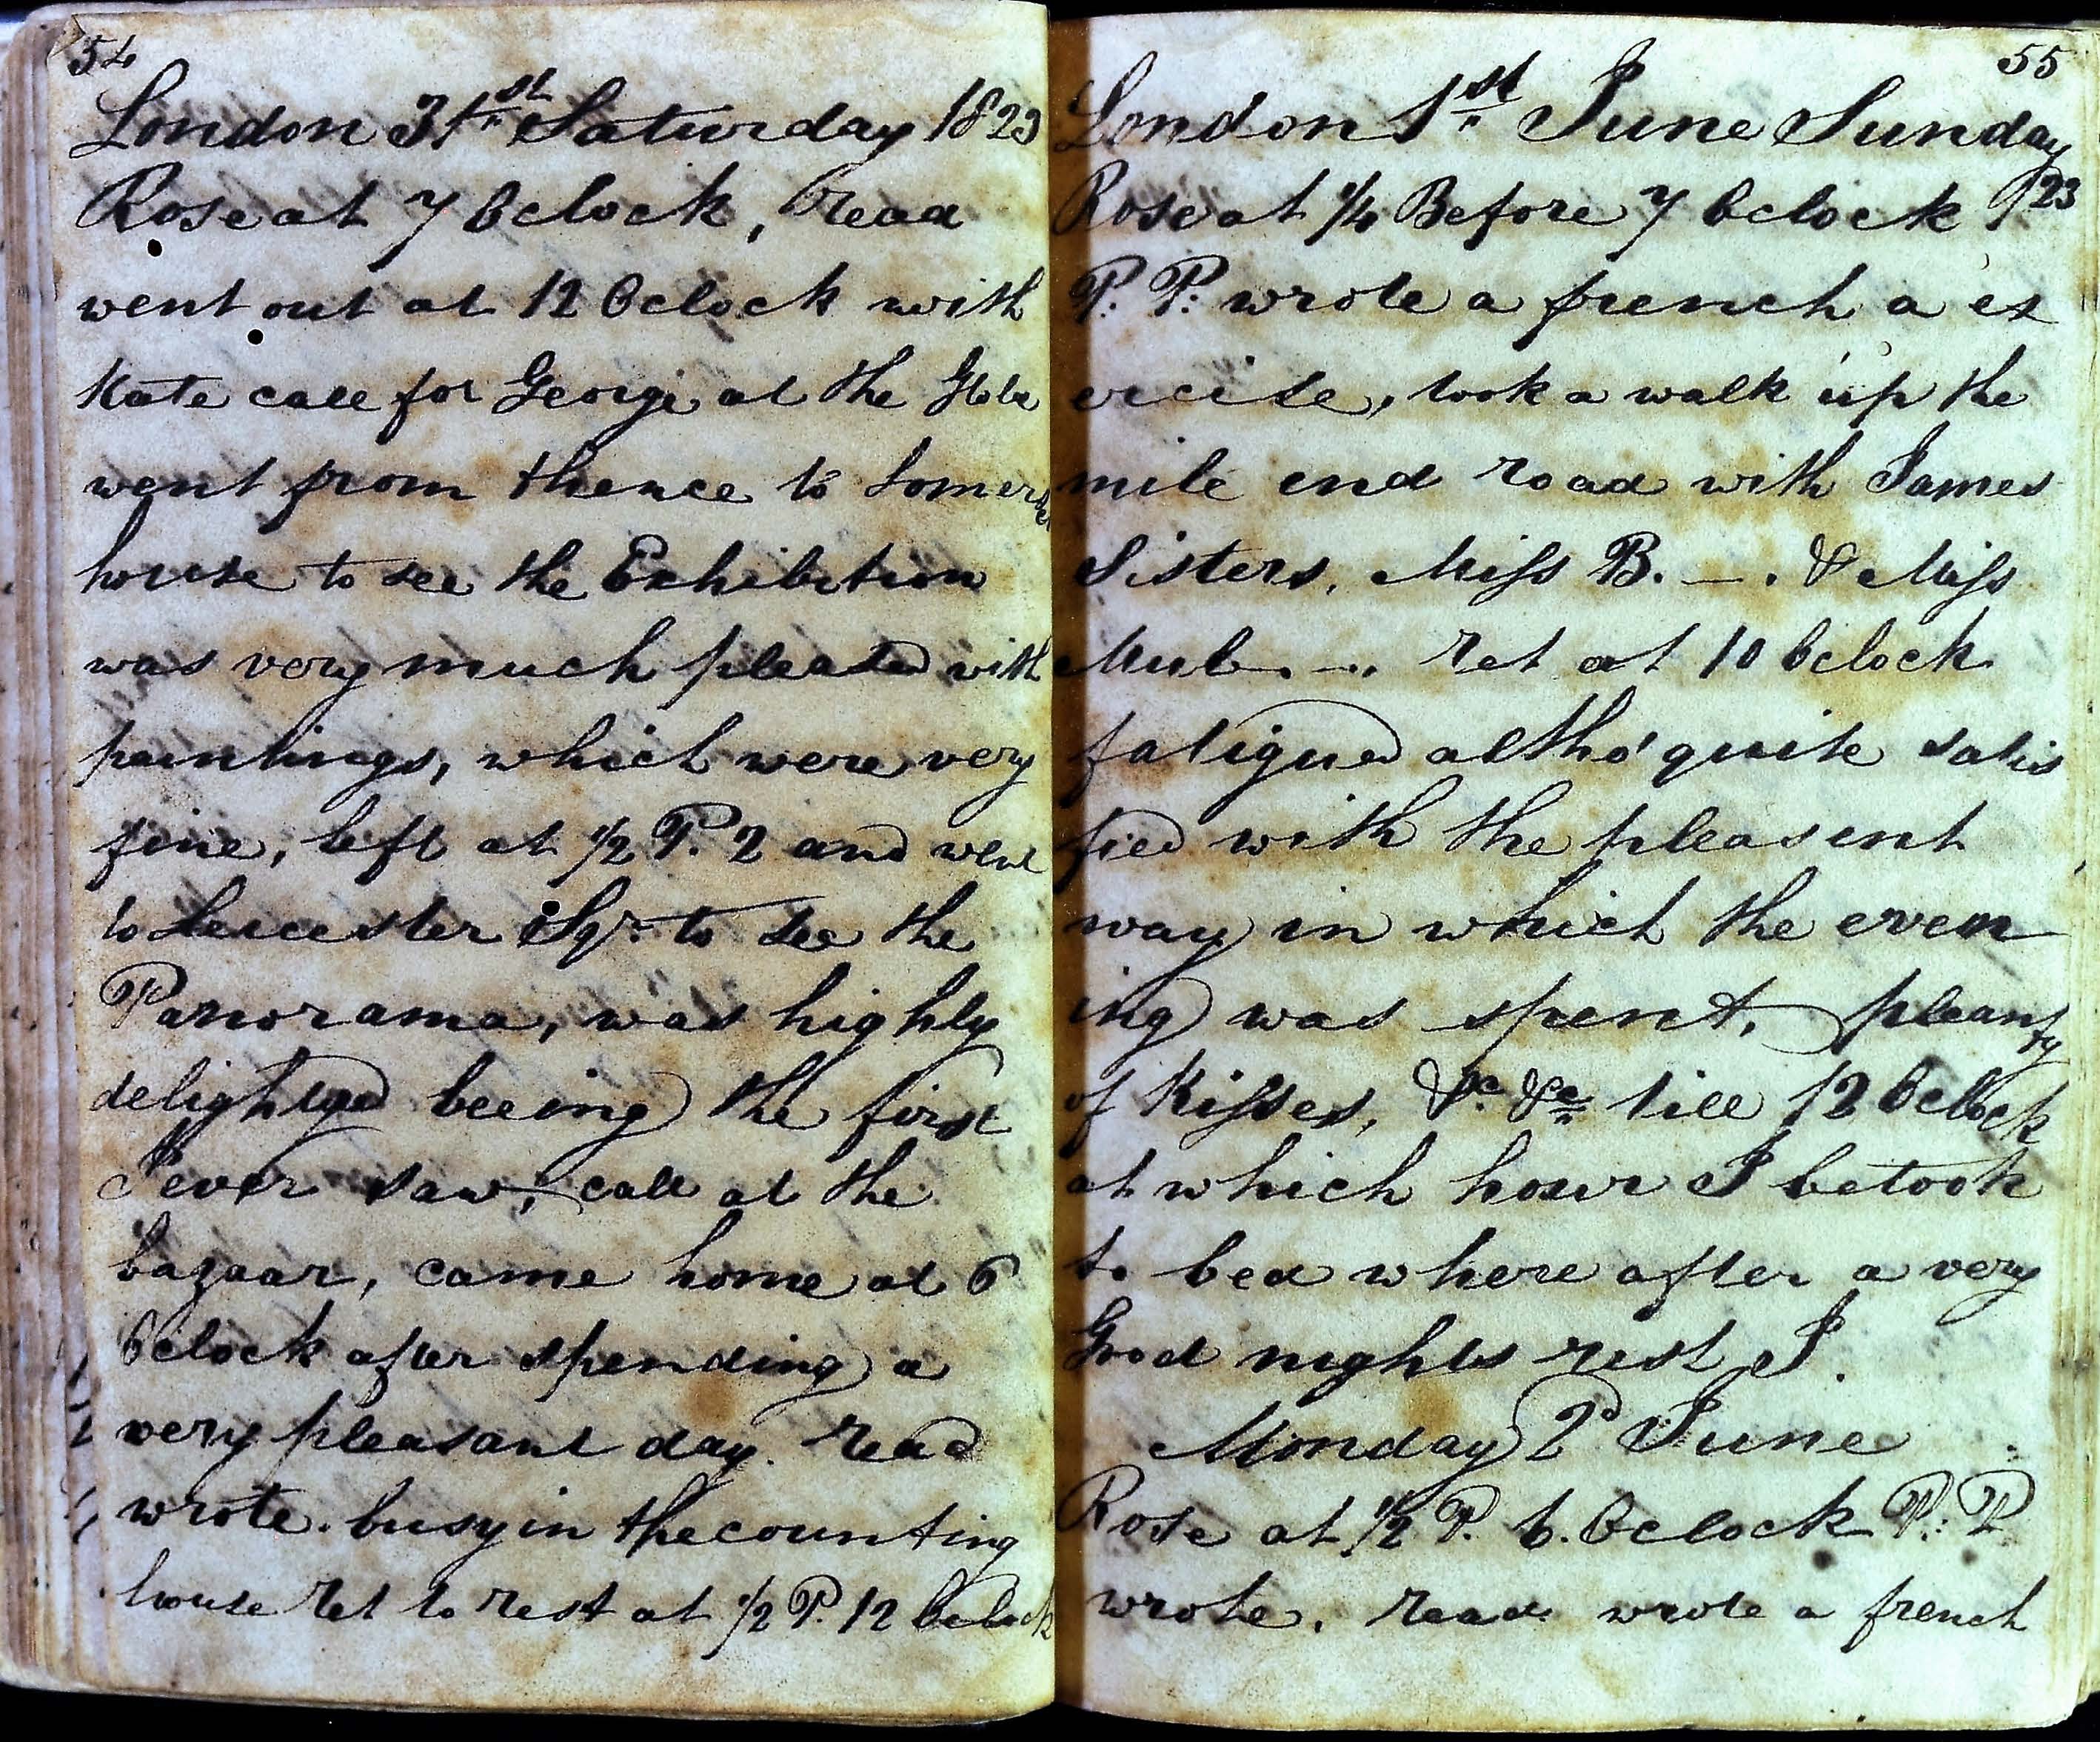 54
London 31st Saturday 1823
Rose at 7 Oclock, read
went out at 12 Oclock with
Kate call for Georgi at the Globe
went from thence to Somerset
house to see the Exhibition
was very much pleased with
paintings, which were very
fine, left at 1/2 P. 2 and went
to Leicester Sqr. to see the
Panorama, was highly
delighted beeing the first
I ever saw, call at the
bazaar, came home at 6
Oclock after spending a
very pleasant day. read
wrote. busy in the counting
house ret to rest at 1/2 P. 12 Oclock
55
London 1st June Sunday
Rose at 1/4 Before 7 Oclock /23
P. P. wrote a french a ex
ercise, took a walk up the
mile end road with James
Sisters, Miss B. —. & Miss
Mul. —. ret at 10 Oclock
fatigued altho' quite satis
fied with the pleasent
way in which the even
ing was spent, pleanty
of Kisses, &c &c till 12 Oclock
at which hour I betook
to bed where after a very
Good nights rest I.
Monday 2d June
Rose at 1/2 P. 6. Oclock P. P
wrote. read wrote a french